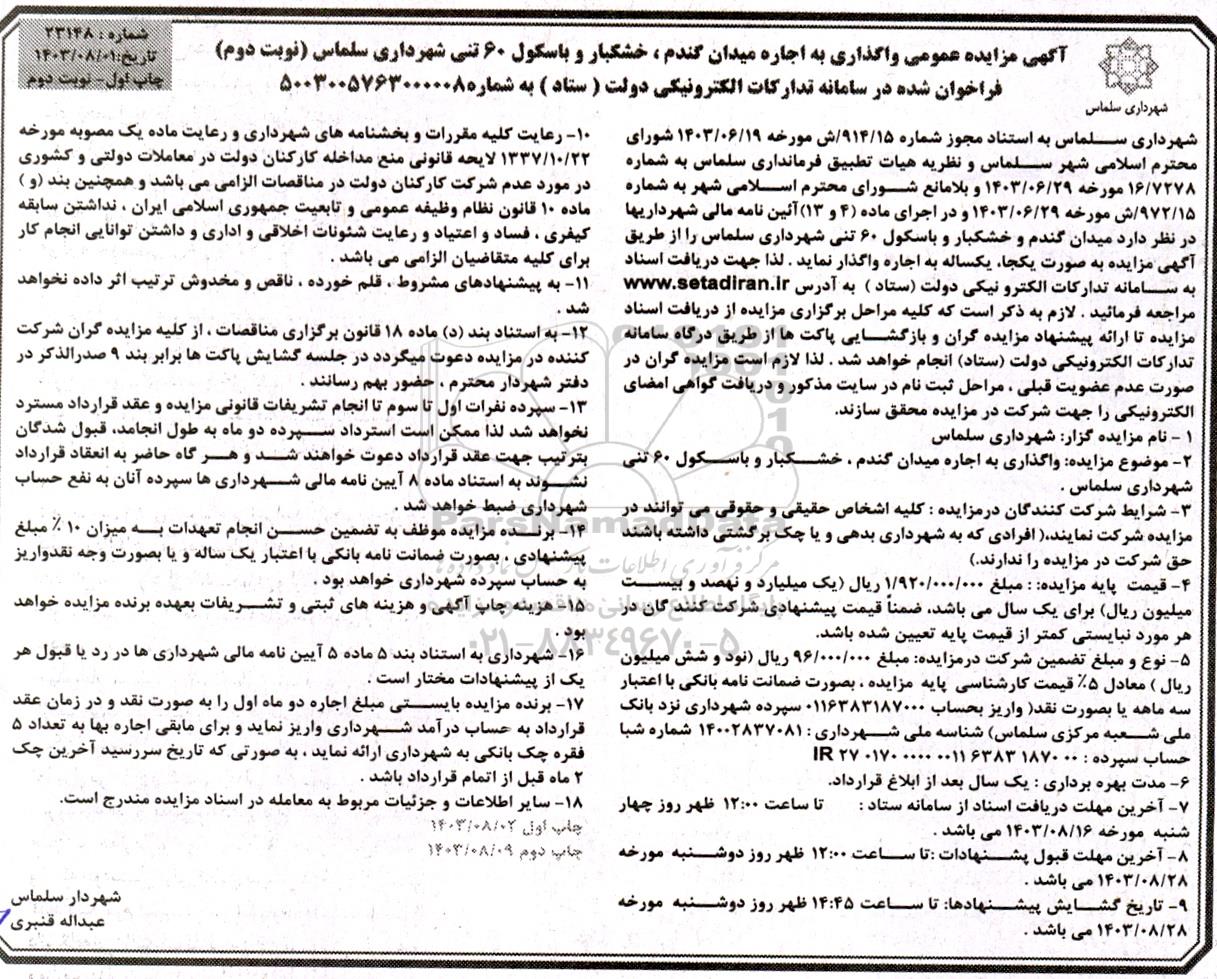 شماره : ۲۳۱۴۸
تاریخ:۱۴۰۳/۰۸/۰۱
چاپ اول- نوبت دوم
آگهی مزایده عمومی واگذاری به اجاره میدان گندم ، خشکبار و باسکول ۶۰ تنی شهرداری سلماس (نوبت دوم)
فراخوان شده در سامانه تدارکات الکترونیکی دولت ( ستاد ) به شماره ۵۰۰۳۰۰۵۷۶۳۰۰۰۰۰۸
شهرداری سلماس
شهرداری سلماس به استناد مجوز شماره ۹۱۴/۱۵/ش مورخه ۱۴۰۳/۰۶/۱۹ شورای
محترم اسلامی شهر سلماس و نظریه هیات تطبیق فرمانداری سلماس به شماره
۱۶/۷۲۷۸ مورخه ۱۴۰۳/۰۶/۲۹ و بلامانع شورای محترم اسلامی شهر به شماره
۹۷۲/۱۵/ش مورخه ۱۴۰۳/۰۶/۲۹ و در اجرای ماده (۴ و ۱۳) آئین نامه مالی شهرداریها
در نظر دارد میدان گندم و خشکبار و باسکول ۶۰ تنی شهرداری سلماس را از طریق
آگهی مزایده به صورت یکجا، یکساله به اجاره واگذار نماید . لذا جهت دریافت اسناد
به سامانه تدارکات الکترو نیکی دولت (ستاد ) به آدرس www.setadiran.ir
مراجعه فرمائید . لازم به ذکر است که کلیه مراحل برگزاری مزایده از دریافت اسناد
مزایده تا ارائه پیشنهاد مزایده گران و بازگشایی پاکت ها از طریق درگاه سامانه
تدارکات الکترونیکی دولت (ستاد) انجام خواهد شد . لذا لازم است مزایده گران در
صورت عدم عضویت قبلی ، مراحل ثبت نام در سایت مذکور و دریافت گواهی امضای
الکترونیکی را جهت شرکت در مزایده محقق سازند.
۱ - نام مزایده گزار: شهرداری سلماس
۲- موضوع مزایده: واگذاری به اجاره میدان گندم ، خشکبار و باسکول ۶۰ تنی
شهرداری سلماس .
۳- شرایط شرکت کنندگان درمزایده : کلیه اشخاص حقیقی و حقوقی می توانند در
مزایده شرکت نمایند.( افرادی که به شهرداری بدهی و یا چک برگشتی داشته باشند
حق شرکت در مزایده را ندارند.)
۴- قیمت پایه مزایده: : مبلغ ۱/۹۲۰/۰۰۰/۰۰۰ ریال (یک میلیارد و نهصد و بیست
میلیون ریال) برای یک سال می باشد، ضمناً قیمت پیشنهادی شرکت کنند گان در
هر مورد نبایستی کمتر از قیمت پایه تعیین شده باشد.
۵- نوع و مبلغ تضمین شرکت درمزایده: مبلغ ۹۶/۰۰۰/۰۰۰ ریال (نود و شش میلیون
ریال ) معادل ۵٪ قیمت کارشناسی پایه مزایده ، بصورت ضمانت نامه بانکی با اعتبار
سه ماهه یا بصورت نقد( واریز بحساب ۰۱۱۶۳۸۳۱۸۷۰۰۰ سپرده شهرداری نزد بانک
ملی شعبه مرکزی سلماس) شناسه ملی شهرداری : ۱۴۰۰۲۸۳۷۰۸۱ شماره شبا
حساب سپرده : IR ۲۷ ۰۱۷۰ ۰۰۰۰ ۰۰۱۱ ۶۳۸۳ ۱۸۷۰ ۰۰
۶- مدت بهره برداری : یک سال بعد از ابلاغ قرارداد.
۷- آخرین مهلت دریافت اسناد از سامانه ستاد : تا ساعت ۱۲:۰۰ ظهر روز چهار
شنبه مورخه ۱۴۰۳/۰۸/۱۶ می باشد .
۸- آخرین مهلت قبول پشنهادات :تا ساعت ۱۲:۰۰ ظهر روز دوشنبه مورخه
۱۴۰۳/۰۸/۲۸ می باشد .
۹- تاریخ گشایش پیشنهادها: تا ساعت ۱۴:۴۵ ظهر روز دوشنبه مورخه
۱۴۰۳/۰۸/۲۸ می باشد .
۱۰- رعایت کلیه مقررات و بخشنامه های شهرداری و رعایت ماده یک مصوبه مورخه
۱۳۳۷/۱۰/۲۲ لایحه قانونی منع مداخله کارکنان دولت در معاملات دولتی و کشوری
در مورد عدم شرکت کارکنان دولت در مناقصات الزامی می باشد و همچنین بند (و )
ماده ۱۰ قانون نظام وظیفه عمومی و تابعیت جمهوری اسلامی ایران ، نداشتن سابقه
کیفری ، فساد و اعتیاد و رعایت شئونات اخلاقی و اداری و داشتن توانایی انجام کار
برای کلیه متقاضیان الزامی می باشد .
۱۱- به پیشنهادهای مشروط ، قلم خورده ، ناقص و مخدوش ترتیب اثر داده نخواهد
شد .
۱۲- به استناد بند (د) ماده ۱۸ قانون برگزاری مناقصات ، از کلیه مزایده گران شرکت
کننده در مزایده دعوت میگردد در جلسه گشایش پاکت ها برابر بند ۹ صدرالذکر در
دفتر شهردار محترم ، حضور بهم رسانند .
۱۳- سپرده نفرات اول تا سوم تا انجام تشریفات قانونی مزایده و عقد قرارداد مسترد
نخواهد شد لذا ممکن است استرداد سپرده دو ماه به طول انجامد، قبول شدگان
بترتیب جهت عقد قرارداد دعوت خواهند شد و هر گاه حاضر به انعقاد قرارداد
نشوند به استناد ماده ۸ آیین نامه مالی شهرداری ها سپرده آنان به نفع حساب
شهرداری ضبط خواهد شد .
۱۴- برنده مزایده موظف به تضمین حسن انجام تعهدات به میزان ۱۰ ٪ مبلغ
پیشنهادی ، بصورت ضمانت نامه بانکی با اعتبار یک ساله و یا بصورت وجه نقدواریز
به حساب سپرده شهرداری خواهد بود .
۱۵- هزینه چاپ آگهی و هزینه های ثبتی و تشریفات بعهده برنده مزایده خواهد
بود .
۱۶- شهرداری به استناد بند ۵ ماده ۵ آیین نامه مالی شهرداری ها در رد یا قبول هر
یک از پیشنهادات مختار است .
۱۷- برنده مزایده بایستی مبلغ اجاره دو ماه اول را به صورت نقد و در زمان عقد
قرارداد به حساب درآمد شهرداری واریز نماید و برای مابقی اجاره بها به تعداد ۵
فقره چک بانکی به شهرداری ارائه نماید ، به صورتی که تاریخ سررسید آخرین چک
۲ ماه قبل از اتمام قرارداد باشد .
۱۸- سایر اطلاعات و جزئیات مربوط به معامله در اسناد مزایده مندرج است.
چاپ اول ۱۴۰۳/۰۸/۰۲
چاپ دوم ۱۴۰۳/۰۸/۰۹
شهردار سلماس
عبداله قنبری
ParsNamadData
۰۲۱-۸۸۳۴۹۶۷۰-۵